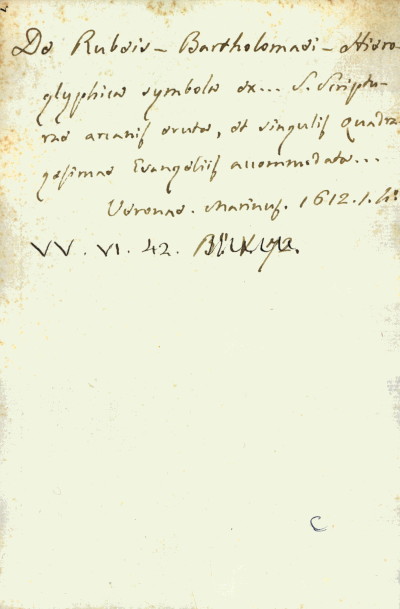 De Rubeis - Bartholomaei - Hiero-
glyphica symbola ex... S. Scriptu-
rae arcanis eruta, et singulis Quadra-
gesimae Evangeliis accommodata...
Veronae. Marinus. 1612. 1. 4:
VV. VI. 42.
C